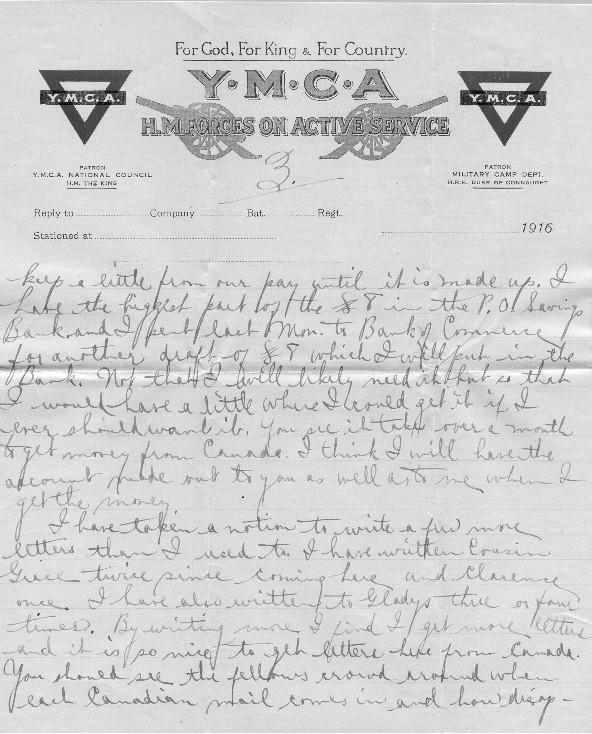 For God, For King & For Country.
Y·M·C·A
Y.M.C.A.
Y.M.C.A.
H.M. FORCES ON ACTIVE SERVICE
PATRON
Y.M.C.A. NATIONAL COUNCIL
H.M. THE KING
PATRON
MILITARY CAMP DEPT.
H.R.H. DUKE OF CONNAUGHT
3.
Reply to Company Bat. Regt.
Stationed at 1916
keep a little from our pay until it is made up. I
have the biggest part of the £8 in the P.O. Savings
Bank and I sent last Mon. to Bank of Commerce
for another draft of £8 which I will put in the
Bank. Not that I will likely need it but so that
I would have a little where I could get it if I
ever should want it. You see it takes over a month
to get money from Canada. I think I will have the
account made out to you as well as to me when I
get the money.
I have taken a notion to write a few more
letters than I used to. I have written Cousin
Grace twice since coming here and Clarence
once. I have also written to Gladys three or four
times. By writing more I find I get more letters
and it is so nice to get letters here from Canada.
You should see the fellows crowd around when
each Canadian mail comes in and how disap-